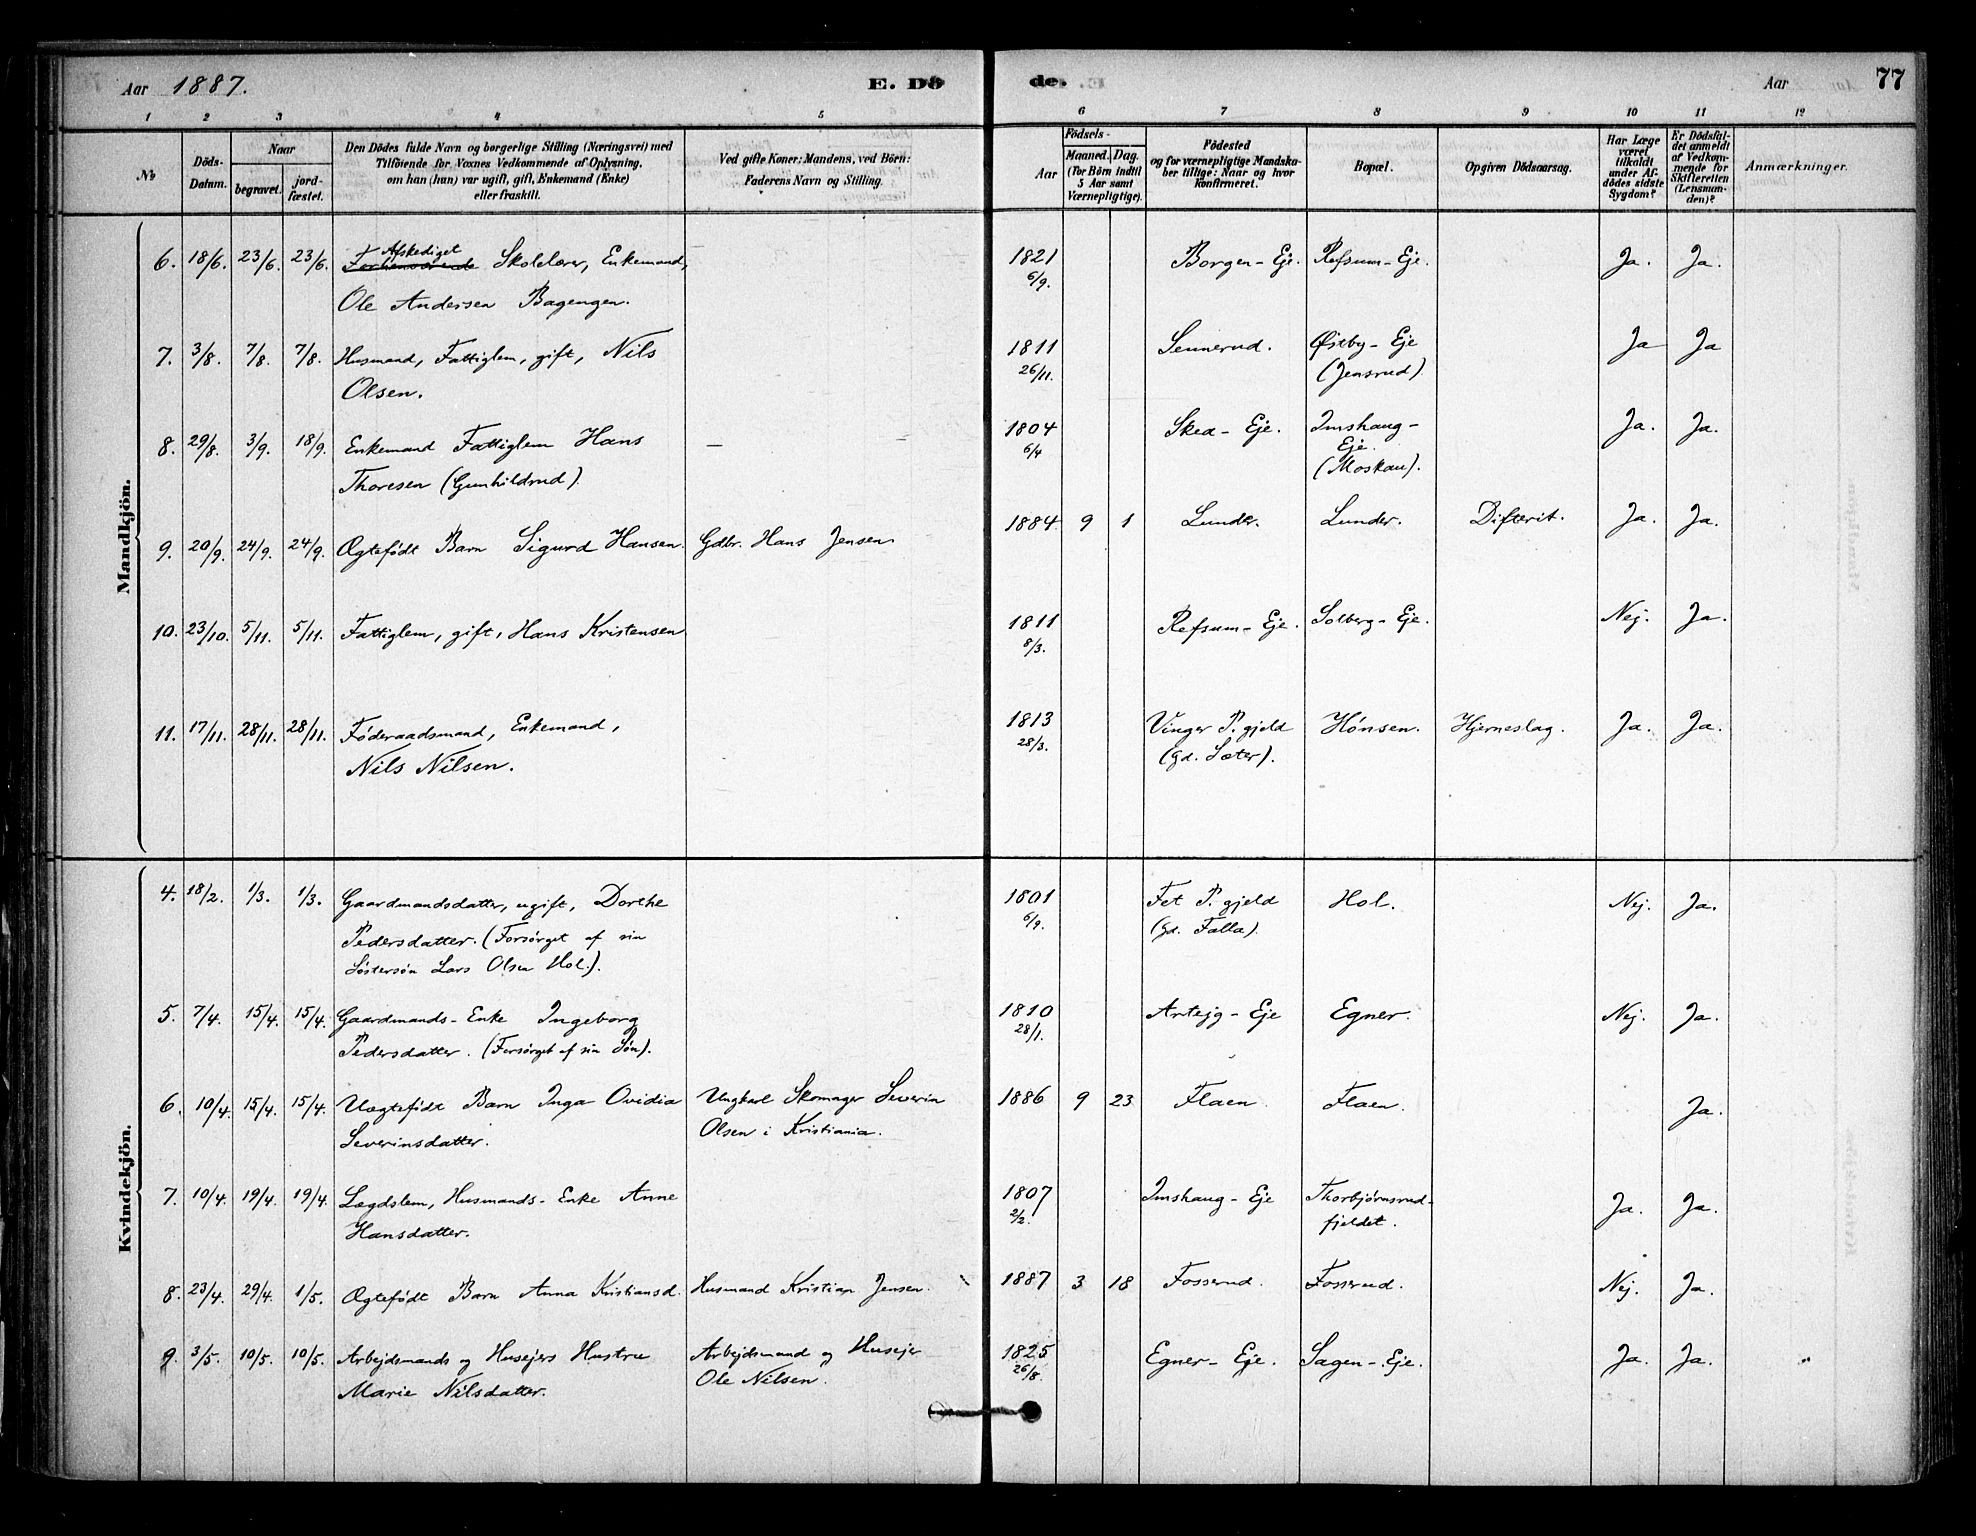 Aar 1887. E. Dö de. Aar 77
1 2 3 4 5 6 7 8 9 10 11 12
No
Döds-
Datum.
Naar
begravet.
jord-
fæstet.
Den Dödes fulde Navn og borgerlige Stilling (Næringsvei) med
Tilföiende for Voxnes Vedkommende af Oplysning,
om han (hun) var ugift, gift, Enkemand (Enke)
eller fraskilt.
Ved gifte Koner: Mandens, ved Börn:
Faderens Navn og Stilling.
Födsels-
Aar
Maaned. Dag.
(for Börn indtil
5 Aar samt
Værnepligtige).
Födested
og for værnepligtige Mandska-
ber tillige: Naar og hvor
konfirmeret.
Bopæl.
Opgiven Dödsaarsag.
Har Læge
været
tilkaldt
under Af-
dödes sidste
Sygdom?
Er Dödsfal-
det anmeldt
af Vedkom-
mende for
Skifteretten
(Lensman-
den)?
Anmærkninger.
Mandkjön.
Afskediget
6. 18/6. 23/6. 23/6. Forhenværende Skolelærer, Enkemand, 1821 Borgen-Eje. Refsum-Eje. Ja. Ja.
Ole Andersen Bagengen. 6/9.
7. 3/8. 7/8. 7/8. Husmand, Fattiglem, gift, Nils 1811 Sennerud. Østby-Eje Ja Ja
Olsen. 26/11. (Jensrud)
8. 29/8. 3/9. 18/9. Enkemand Fattiglem Hans — 1804 Skea-Eje. Imshaug- Ja. Ja.
Thoresen (Gunhildrud). 6/4 Eje.
(Moskau).
9. 20/9. 24/9. 24/9. Ægtefödt Barn Sigurd Hansen. Gdbr. Hans Jensen 1884 9 1 Lunder. Lunder. Difterit. Ja. Ja.
10. 23/10. 5/11. 5/11. Fattiglem, gift, Hans Kristensen 1811 Refsum-Eje. Solberg-Eje. Nej. Ja.
8/3.
11. 17/11. 28/11. 28/11. Föderaadsmand, Enkemand, 1813 Vinger P. gjeld Hönsen. Hjerneslag. Ja. Ja.
Nils Nilsen. 28/3. (gd. Sæter).
Kvindekjön.
4. 18/2. 1/3. 1/3. Gaardmandsdatter, ugift, Dorthe 1801 Fet P. gjeld Hol. Nej. Ja.
Pedersdatter. (Forsörget af sin 6/9. (gd. Falla).
Söstersön Lars Olsen Hol.).
5. 7/4. 15/4. 15/4. Gaardmands-Enke Ingeborg 1810 Artejg-Eje Egner. Nej. Ja.
Pedersdatter. (Forsörget af sin Sön). 28/1.
6. 10/4. 15/4. 15/4. Uægtefödt Barn Inga Ovidia Ungkarl Skomager Severin 1886 9 23 Flaen. Flaen. Ja.
Severinsdatter. Olsen i Kristiania.
7. 10/4. 19/4. 19/4. Lægdslem, Husmands-Enke Anne 1807 Imshaug-Eje Thorbjörnsrud- Ja. Ja.
Hansdatter. 2/2. fjeldet.
8. 23/4. 29/4. 1/5. Ægtefödt Barn Anna Kristiansd. Husmand Kristian Jensen. 1887 3 18 Fosserud. Fosserud. Nej. Ja.
9. 3/5. 10/5. 10/5. Arbejdsmands og Husejers Hustru Arbejdsmand og Husejer 1825 Egner-Eje. Sagen-Eje. Ja. Ja.
Marie Nilsdatter. Ole Nilsen. 26/8.